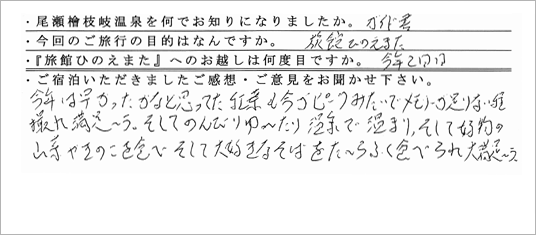 ・尾瀬檜枝岐温泉を何でお知りになりましたか。 ガイド書
・今回のご旅行の目的はなんですか。 旅館ひのえまた
・『旅館ひのえまた』へのお越しは何度目ですか。 今年2回目
・ご宿泊いただきましたご感想・ご意見をお聞かせ下さい。
今年は早かったかなと思ってた紅葉も今がピークみたいでメモリーが足りない程
撮れ満足～う。そしてのんびりゆ～たり温泉で温まり、そして好物の
山菜やきのこを食べ そして大好きなそばをた～らふく食べられ大満足～う